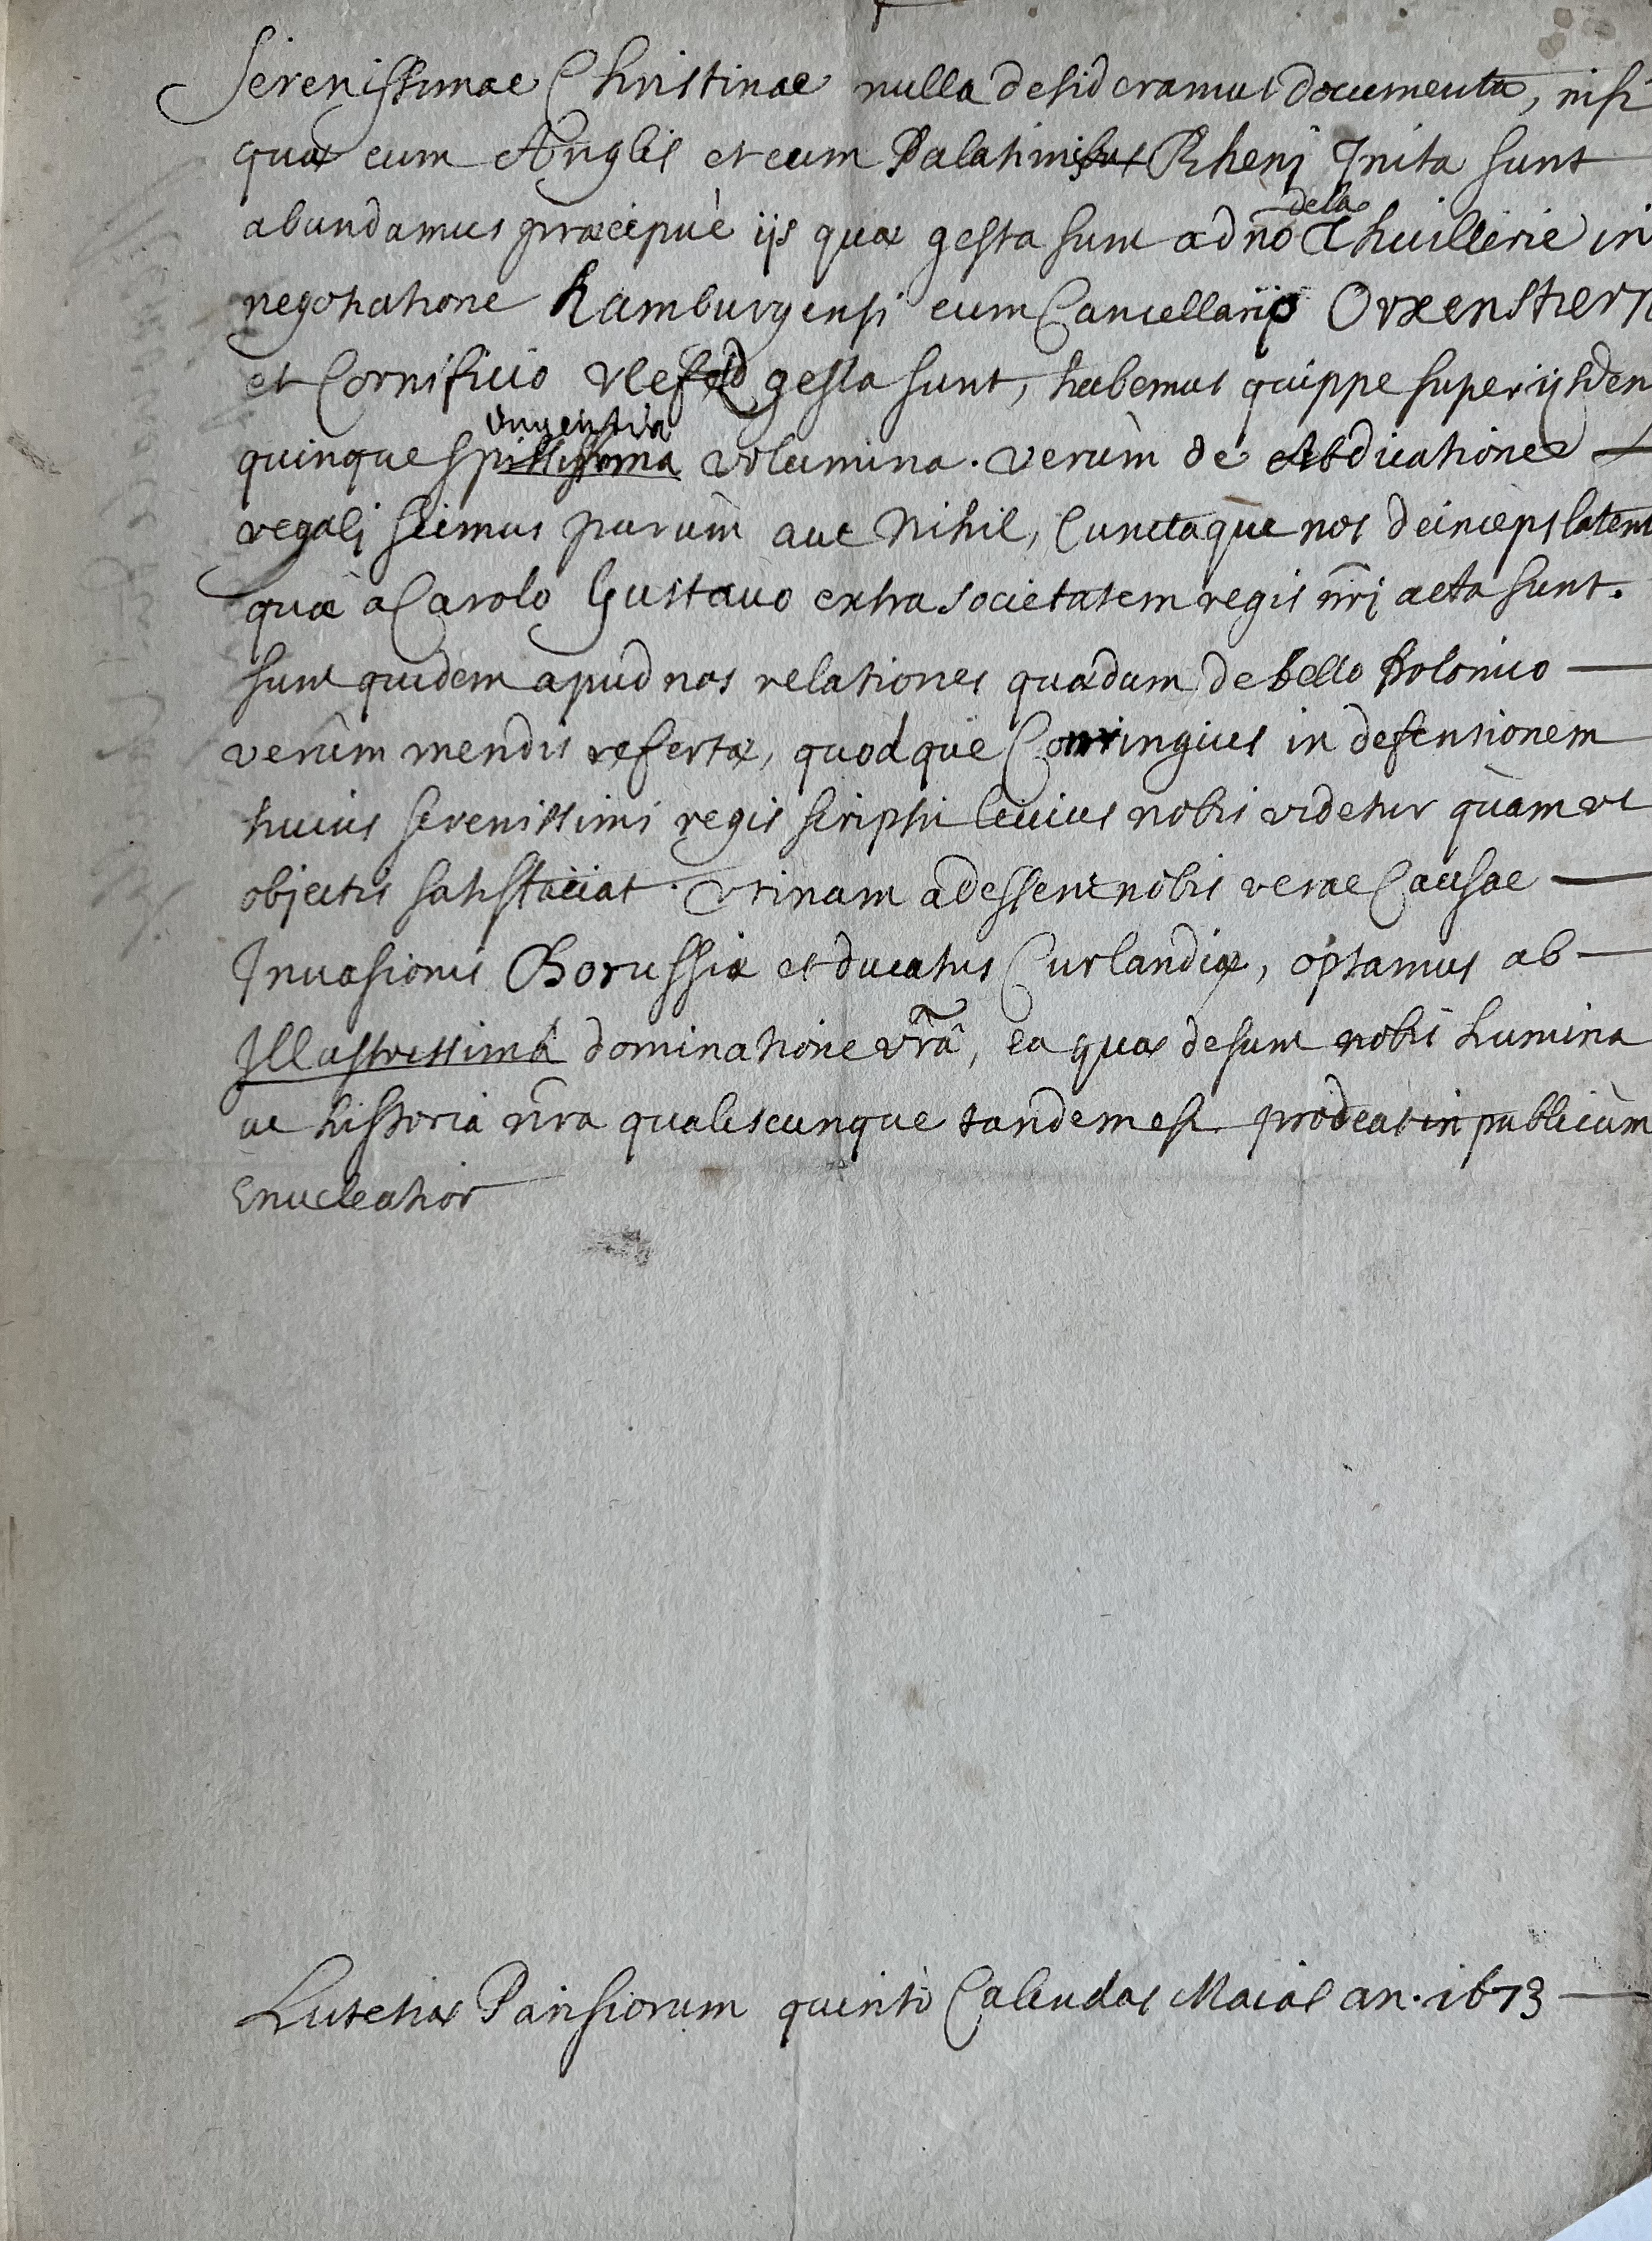 Serenissimae Christinae nulla desideramus documenta, nisi
quæ cum Anglis et cum Palatinibus Rheni Inita sunt
abundamus præcipuè ijs quæ gesta sunt a dno Thuillerie in
dela
negotiatione hamburgensi cum Cancellario Oxenstiern
et Cornificio Vlefeld gesta sunt, habemus quippe super ijsdem
ingentia
quinque spississima volumina. verùm de Abdicatione
regali scimus parum aut Nihil, Cunctaque nos deinceps latent
quæ a Carolo Gustavo extra societatem regis nri acta sunt.
sunt quidem apud nos relationes quædam de bello Polonico
verùm mendis refertæ, quodque Conringius in defensionem
huius serenissimi regis scripsit levius nobis videtur quàm ut
objectis satisfaciat. Utinam adessent nobis verae Causae
Invasionis Borussiæ et ducatus Curlandiæ, optamus ab
Illustrissimâ dominatione vrâ, ea quæ desunt nobis Lumina
ut historia nra qualiscunque tandem est prodeat in publicum
Enucleatior
Lutetiæ Parisiorum quinto Calendas Maias an. 1673